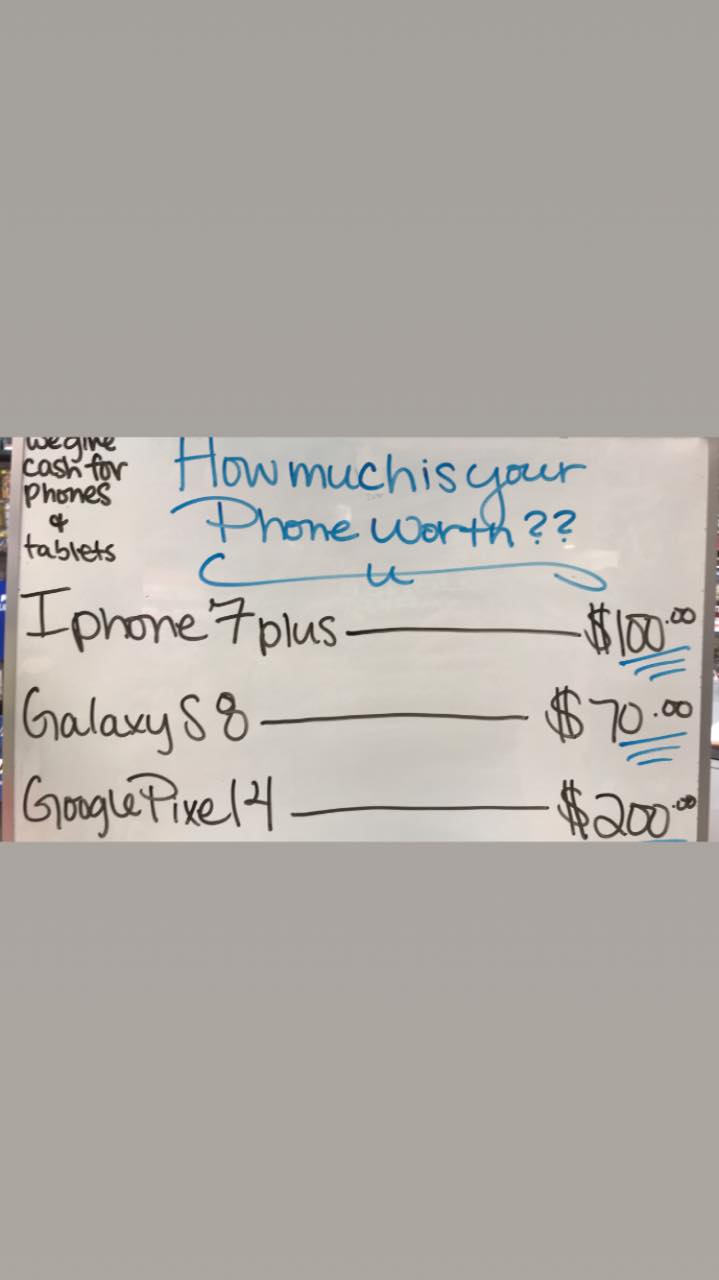 we give
cash for
phones
&
tablets
How much is your
Phone worth??
Iphone 7 plus $100.00
Galaxy S8 $70.00
Google Pixel 4 $200.00